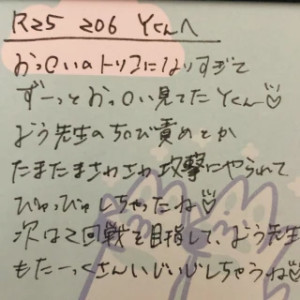 R25 206 Yくんへ
おっ○いのトリコになりすぎて
ずーっとおっ○い見てたYくん♡
よう先生のちび責めとか
たまたまさわさわ攻撃にやられて
びゅっびゅしちゃったね♡
次は2回戦を目指して、よう先生
もたーっくさんいじいじしちゃうね♡